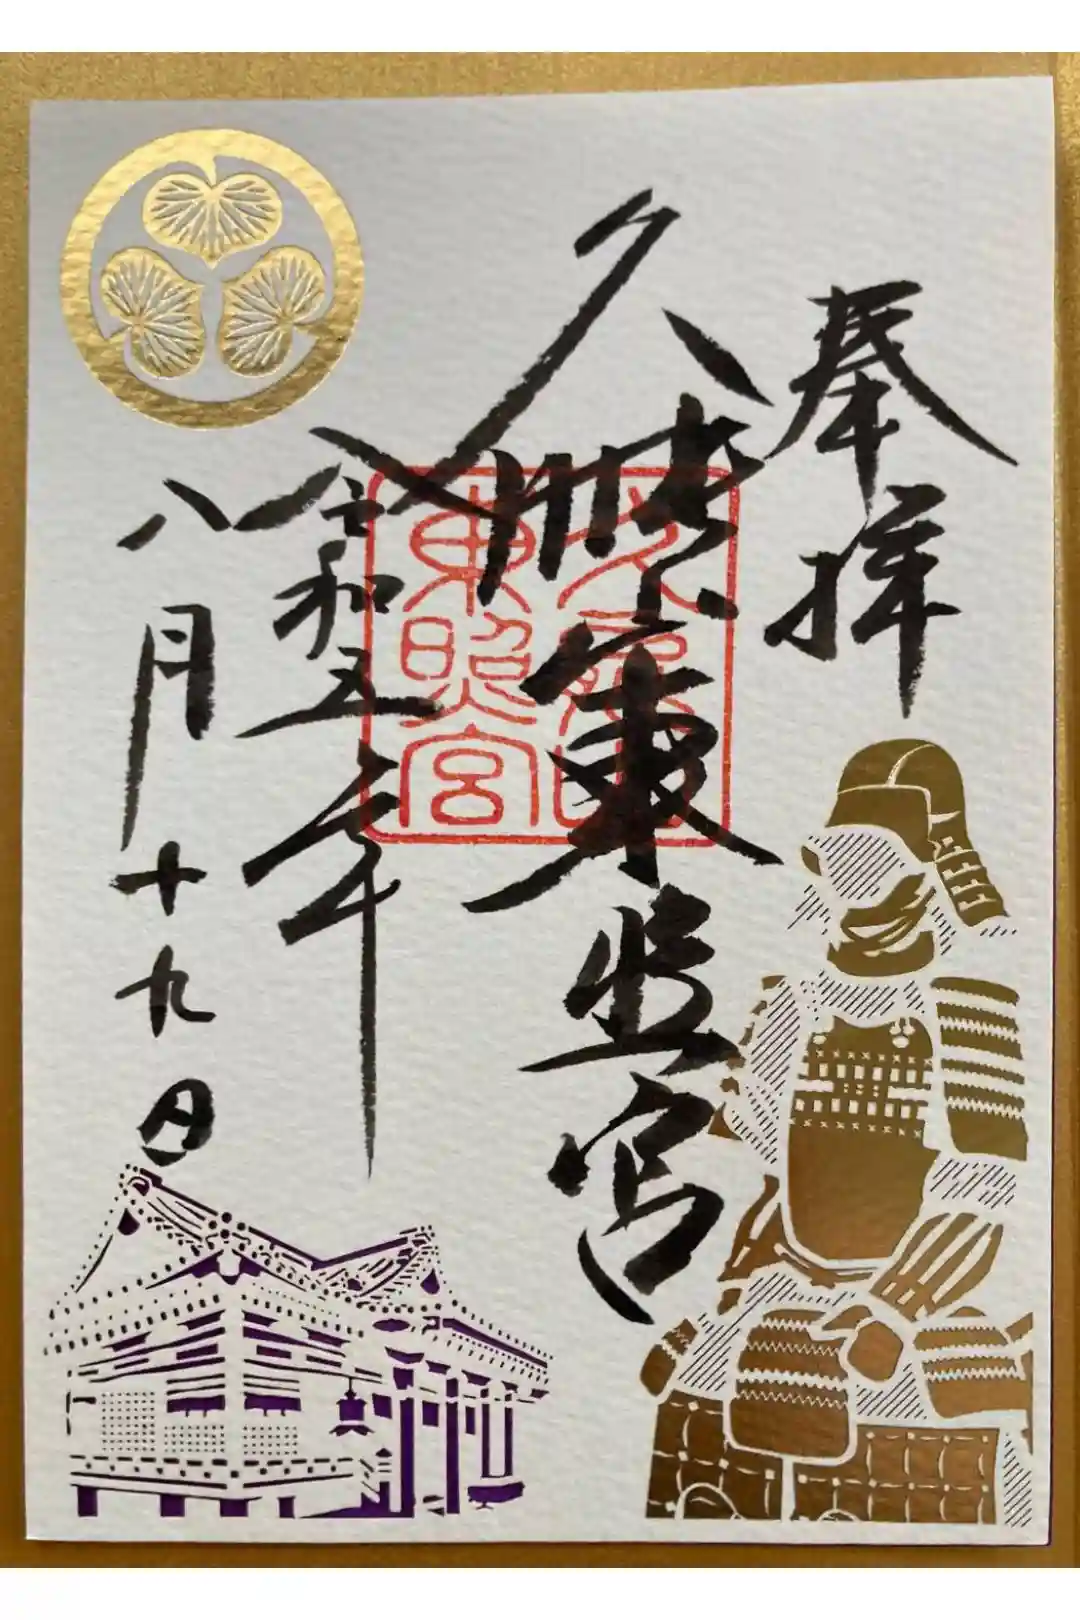 奉拝
久能山東照宮
令和五年
八月十九日
久能山
東照宮